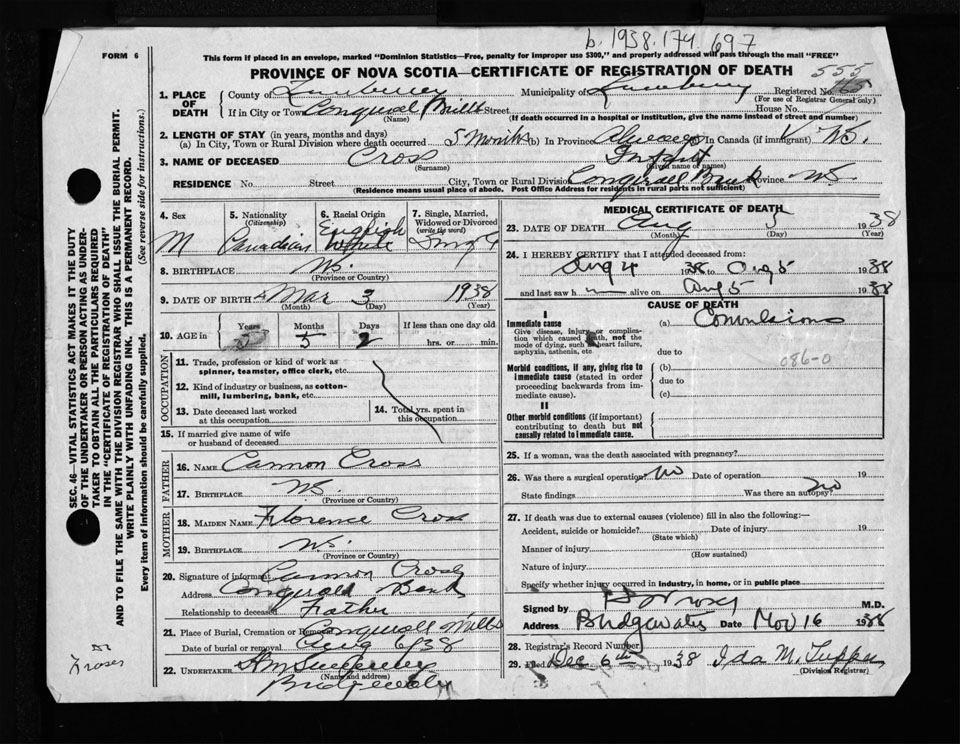 b. 1938.174.697
FORM 6
This form if placed in an envelope, marked "Dominion Statistics—Free, penalty for improper use $300," and properly addressed will pass through the mail "FREE"
PROVINCE OF NOVA SCOTIA—CERTIFICATE OF REGISTRATION OF DEATH
555
1. PLACE OF DEATH
County of Lunenburg Municipality of Lunenburg Registered No.
(For use of Registrar General only)
If in City or Town Conquerall Mills Street House No.
(Name) (If death occurred in a hospital or institution, give the name instead of street and number)
2. LENGTH OF STAY (in years, months and days)
(a) In City, Town or Rural Division where death occurred 5 Months (b) In Province Always (c) In Canada (if immigrant) N.S.
3. NAME OF DECEASED Cross Infant
(Surname) (Given name or names)
RESIDENCE No. Street City, Town or Rural Division Conquerall Bank Province N.S.
(Residence means usual place of abode. Post Office Address for residents in rural parts not sufficient)
4. Sex M
5. Nationality (Citizenship) Canadian
6. Racial Origin English White
7. Single, Married, Widowed or Divorced (write the word) Single
8. BIRTHPLACE N.S.
(Province or Country)
9. DATE OF BIRTH Mar 3 1938
(Month) (Day) (Year)
10. AGE in Years Months Days If less than one day old
5 2 hrs. or min.
OCCUPATION
11. Trade, profession or kind of work as spinner, teamster, office clerk, etc.
12. Kind of industry or business, as cotton-mill, lumbering, bank, etc.
13. Date deceased last worked at this occupation
14. Total yrs. spent in this occupation
15. If married give name of wife or husband of deceased
FATHER
16. NAME Cannon Cross
17. BIRTHPLACE N.S.
(Province or Country)
MOTHER
18. MAIDEN NAME Florence Cross
19. BIRTHPLACE N.S.
(Province or Country)
20. Signature of informant Cannon Cross
Address Conquerall Bank
Relationship to deceased Father
21. Place of Burial, Cremation or Removal Conquerall Mills
Date of burial or removal Aug 6/38
22. UNDERTAKER
(Name and address)
Bridgewater
MEDICAL CERTIFICATE OF DEATH
23. DATE OF DEATH Aug 5 1938
(Month) (Day) (Year)
24. I HEREBY CERTIFY that I attended deceased from:
Aug 4 1938 to Aug 5 1938
and last saw h alive on Aug 5 1938
CAUSE OF DEATH
I
Immediate cause (a) Convulsions
Give disease, injury or complication which caused death, not the mode of dying, such as heart failure, asphyxia, asthenia, etc.
due to
086-0
Morbid conditions, if any, giving rise to immediate cause (stated in order proceeding backwards from immediate cause).
(b)
due to
(c)
II
Other morbid conditions (if important) contributing to death but not causally related to immediate cause.
25. If a woman, was the death associated with pregnancy?
26. Was there a surgical operation? no Date of operation 19
State findings Was there an autopsy? no
27. If death was due to external causes (violence) fill in also the following:—
Accident, suicide or homicide? Date of injury 19
(State which)
Manner of injury
(How sustained)
Nature of injury
Specify whether injury occurred in industry, in home, or in public place
Signed by M.D.
Address Bridgewater Date Nov 16 1938
28. Registrar's Record Number
29. Filed Dec 6th 1938 Ida M. Tupper
(Division Registrar)
SEC. 46—VITAL STATISTICS ACT MAKES IT THE DUTY
OF THE UNDERTAKER OR PERSON ACTING AS UNDER-
TAKER TO OBTAIN ALL THE PARTICULARS REQUIRED
IN THE "CERTIFICATE OF REGISTRATION OF DEATH"
AND TO FILE THE SAME WITH THE DIVISION REGISTRAR WHO SHALL ISSUE THE BURIAL PERMIT.
WRITE PLAINLY WITH UNFADING INK. THIS IS A PERMANENT RECORD.
Every item of information should be carefully supplied. (See reverse side for instructions.)
Fraser